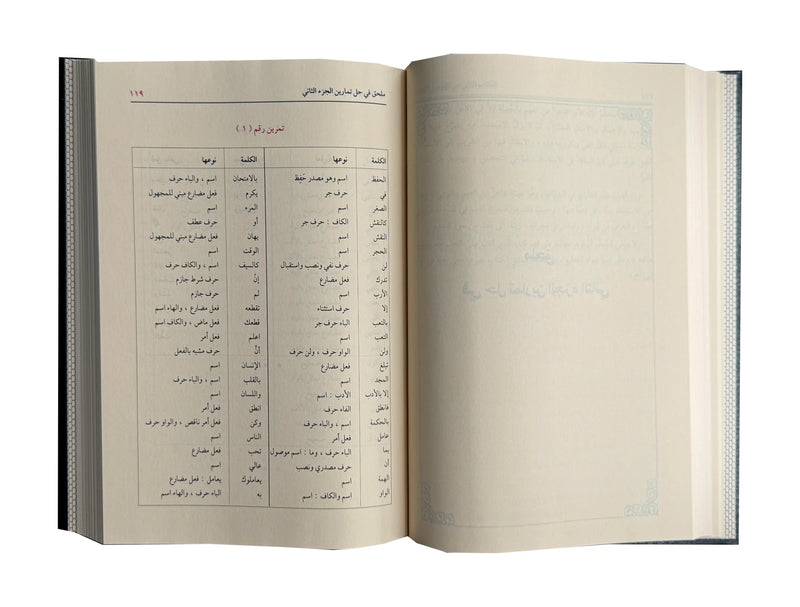 ملحق في حل تمارين الجزء الثاني ١١٩
تمرين رقم ( ١ )
الكلمة نوعها الكلمة نوعها
الحفظ اسم وهو مصدر حَفِظ بالامتحان اسم ، والباء حرف
في حرف جر يكرم فعل مضارع مبني للمجهول
الصغر اسم المرء اسم
كالنقش الكاف : حرف جر أو حرف عطف
النقش اسم يهان فعل مضارع مبني للمجهول
الحجر اسم الوقت اسم
لن حرف نفي ونصب واستقبال كالسيف اسم ، والكاف حرف
تدرك فعل مضارع إنْ حرف شرط جازم
الأرب اسم لم حرف جازم
إلا حرف استثناء تقطعه فعل مضارع ، والهاء اسم
بالتعب الباء حرف جر قطعك فعل ماض ، والكاف اسم
التعب اسم اعلم فعل أمر
ولن الواو حرف ، ولن حرف أنَّ حرف مشبه بالفعل
تبلغ فعل مضارع الإنسان اسم
المجد اسم بالقلب اسم ، والباء حرف
إلا بالأدب الأدب : اسم واللسان اسم
فانطق الفاء حرف انطق فعل أمر
بالحكمة اسم ، والباء حرف وكن فعل أمر ناقص ، والواو حرف
عامل فعل أمر الناس اسم
بما الباء حرف ، وما : اسم موصول تحب فعل مضارع
أن حرف مصدري ونصب عالي اسم
الهمة اسم يعاملوك يعامل : فعل مضارع
الواو اسم والكاف : اسم به الباء حرف ، والهاء اسم
ملحق
في حل تمارين الجزء الثاني